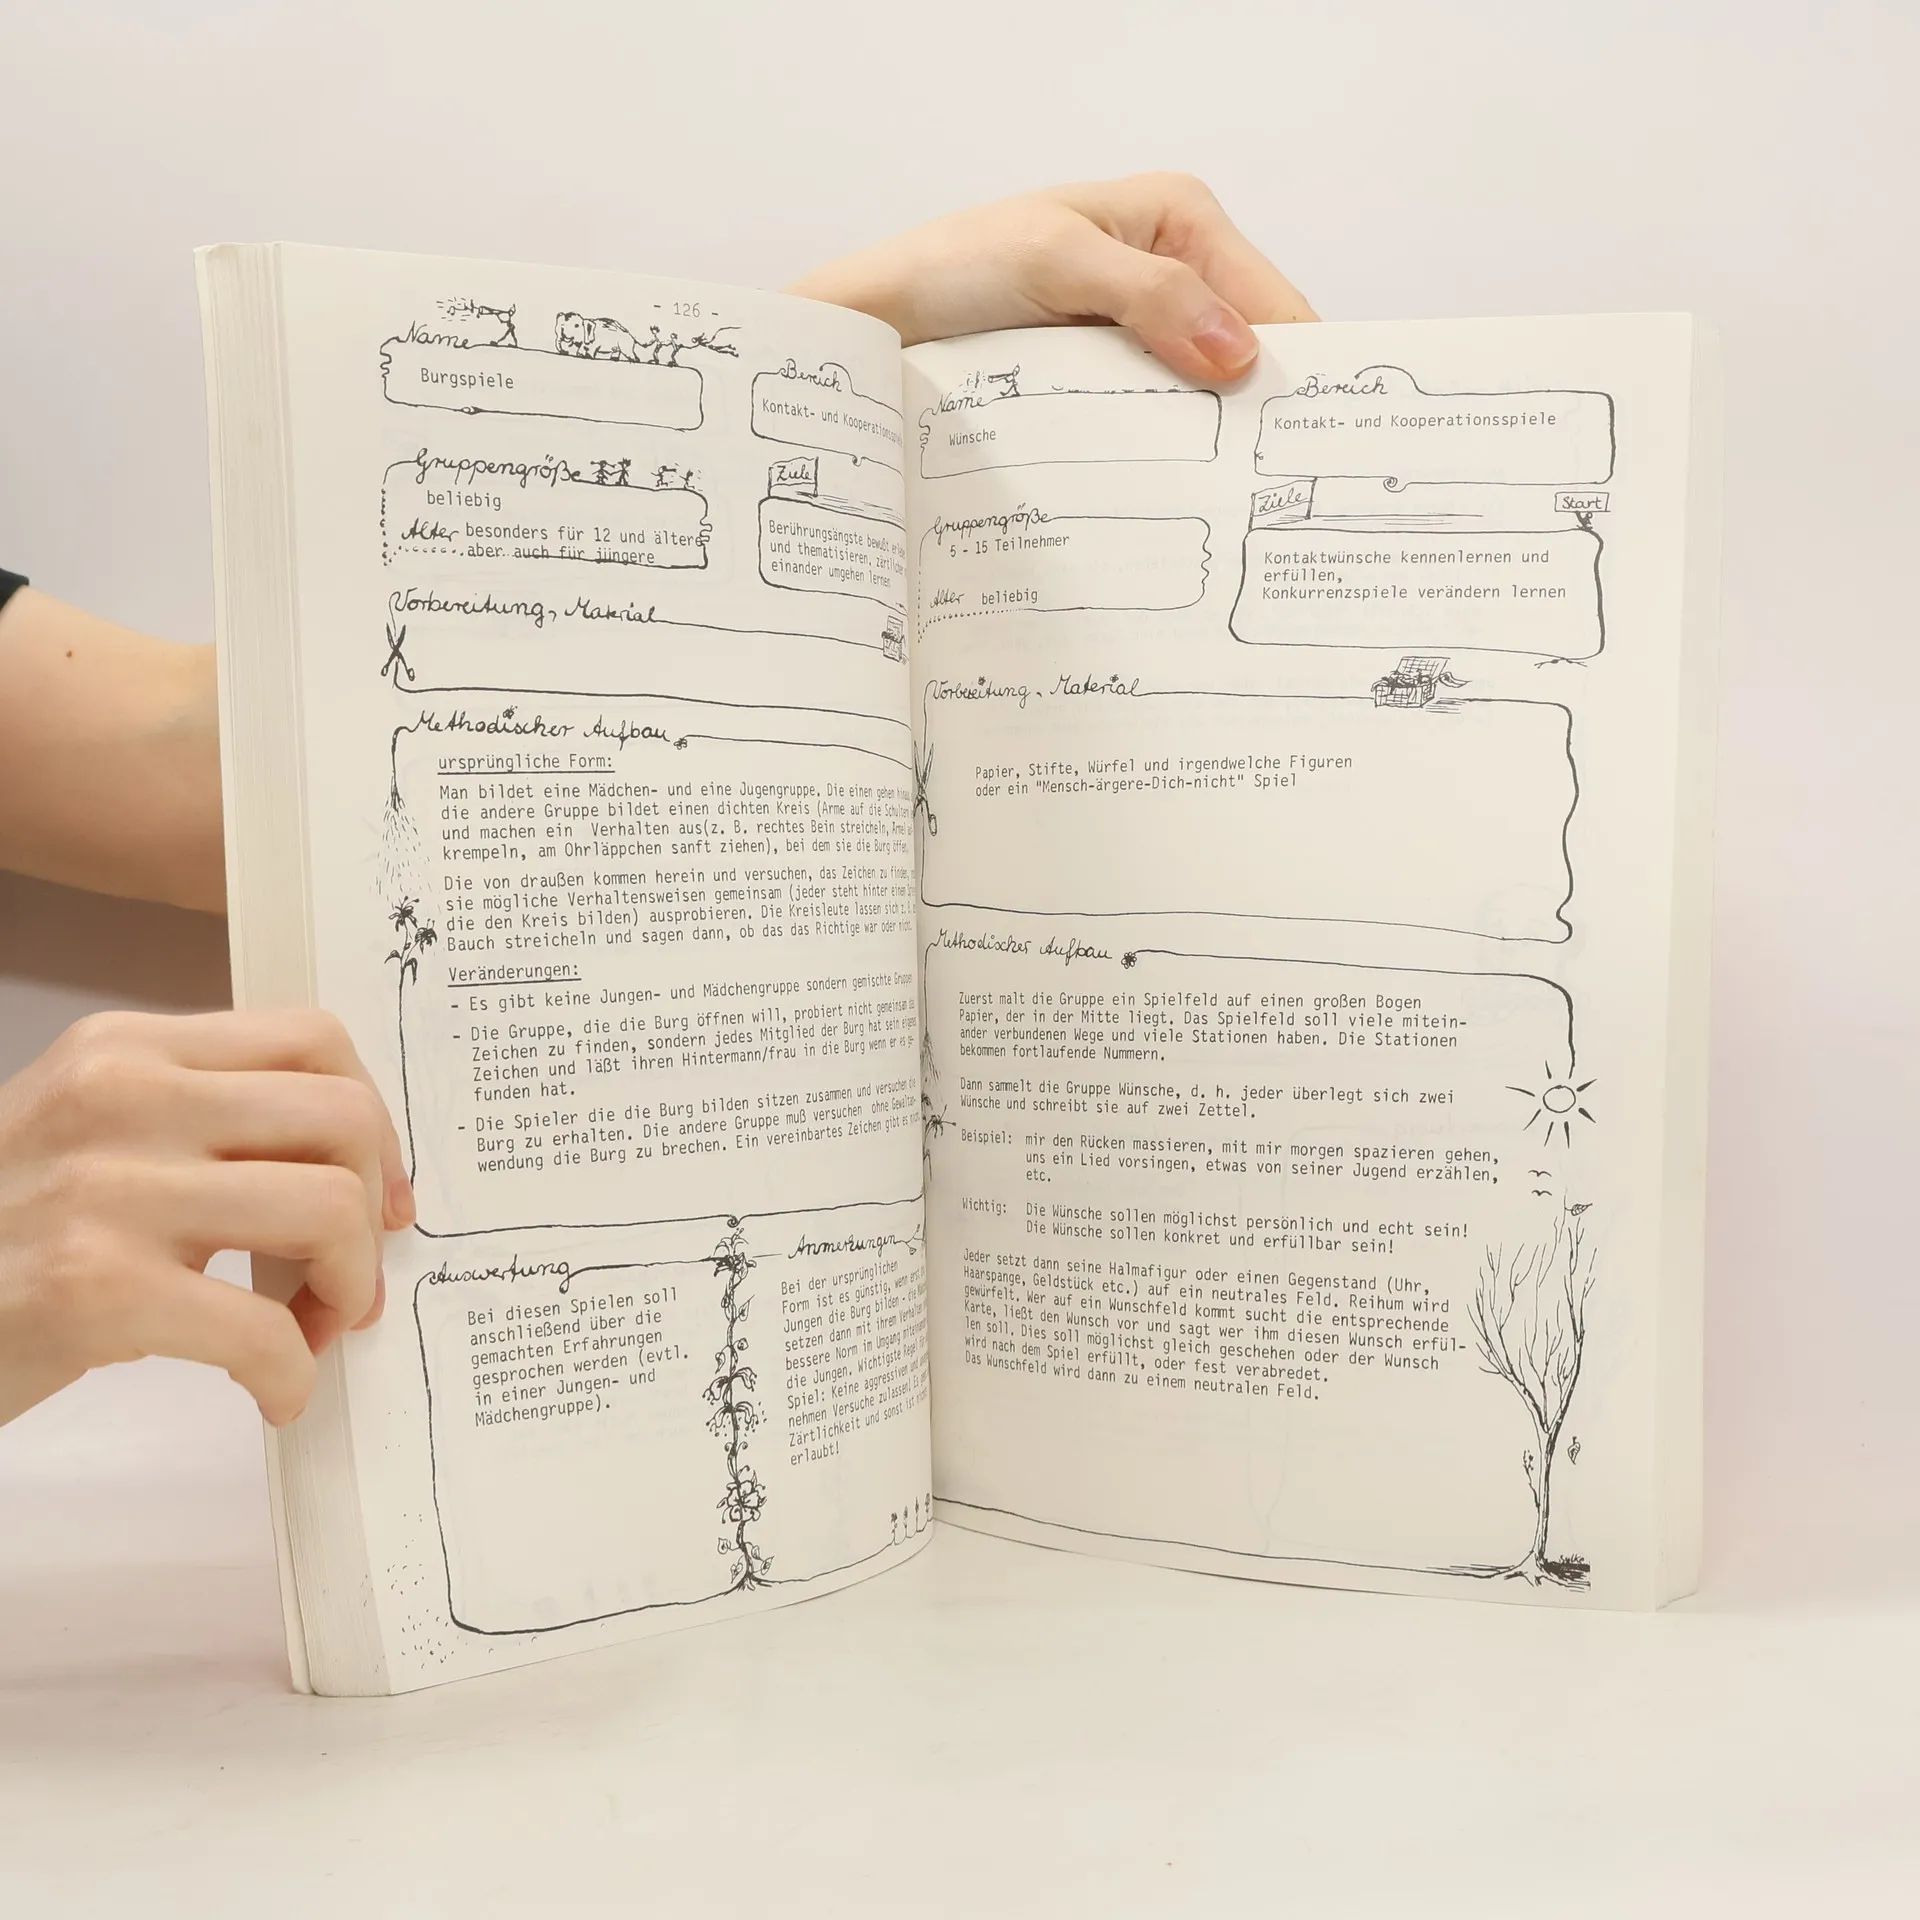 - 126 -
Name
Burgspiele
Bereich
Kontakt- und
Gruppengröße
beliebig
Alter besonders für 12 und ältere
aber auch für jüngere
Ziele
Berührungsängste bewußt
und thematisieren,
einander umgehen lernen
Vorbereitung, Material
Methodischer Aufbau
ursprüngliche Form:
Man bildet eine Mädchen- und eine Jugengruppe. Die einen gehen
die andere Gruppe bildet einen dichten Kreis (Arme auf die
und machen ein Verhalten aus(z. B. rechtes Bein streicheln,
krempeln, am Ohrläppchen sanft ziehen), bei dem sie die Burg
Die von draußen kommen herein und versuchen, das Zeichen zu
sie mögliche Verhaltensweisen gemeinsam (jeder steht hinter einem
die den Kreis bilden) ausprobieren. Die Kreisleute lassen sich
Bauch streicheln und sagen dann, ob das das Richtige war oder
Veränderungen:
- Es gibt keine Jungen- und Mädchengruppe sondern gemischte
- Die Gruppe, die die Burg öffnen will, probiert nicht gemeinsam
Zeichen zu finden, sondern jedes Mitglied der Burg hat sein
Zeichen und läßt ihren Hintermann/frau in die Burg wenn er es ge-
funden hat.
- Die Spieler die die Burg bilden sitzen zusammen und versuchen die
Burg zu erhalten. Die andere Gruppe muß versuchen ohne Gewaltan-
wendung die Burg zu brechen. Ein vereinbartes Zeichen gibt es
Auswertung
Bei diesen Spielen soll
anschließend über die
gemachten Erfahrungen
gesprochen werden (evtl.
in einer Jungen- und
Mädchengruppe).
Anmerkungen
Bei der ursprünglichen
Form ist es günstig, wenn
Jungen die Burg bilden - die
setzen dann mit ihrem
bessere Norm im Umgang
die Jungen. Wichtigste
Spiel: Keine aggressiven
nehmen Versuche zulassen!
Zärtlichkeit und sonst ist
erlaubt!
Name
Wünsche
Bereich
Kontakt- und Kooperationsspiele
Gruppengröße
5 - 15 Teilnehmer
Alter beliebig
Ziele
Start
Kontaktwünsche kennenlernen und
erfüllen,
Konkurrenzspiele verändern lernen
Vorbereitung, Material
Papier, Stifte, Würfel und irgendwelche Figuren
oder ein "Mensch-ärgere-Dich-nicht" Spiel
Methodischer Aufbau
Zuerst malt die Gruppe ein Spielfeld auf einen großen Bogen
Papier, der in der Mitte liegt. Das Spielfeld soll viele mitein-
ander verbundenen Wege und viele Stationen haben. Die Stationen
bekommen fortlaufende Nummern.
Dann sammelt die Gruppe Wünsche, d. h. jeder überlegt sich zwei
Wünsche und schreibt sie auf zwei Zettel.
Beispiel: mir den Rücken massieren, mit mir morgen spazieren gehen,
uns ein Lied vorsingen, etwas von seiner Jugend erzählen,
etc.
Wichtig: Die Wünsche sollen möglichst persönlich und echt sein!
Die Wünsche sollen konkret und erfüllbar sein!
Jeder setzt dann seine Halmafigur oder einen Gegenstand (Uhr,
Haarspange, Geldstück etc.) auf ein neutrales Feld. Reihum wird
gewürfelt. Wer auf ein Wunschfeld kommt sucht die entsprechende
Karte, ließt den Wunsch vor und sagt wer ihm diesen Wunsch erfül-
len soll. Dies soll möglichst gleich geschehen oder der Wunsch
wird nach dem Spiel erfüllt, oder fest verabredet.
Das Wunschfeld wird dann zu einem neutralen Feld.